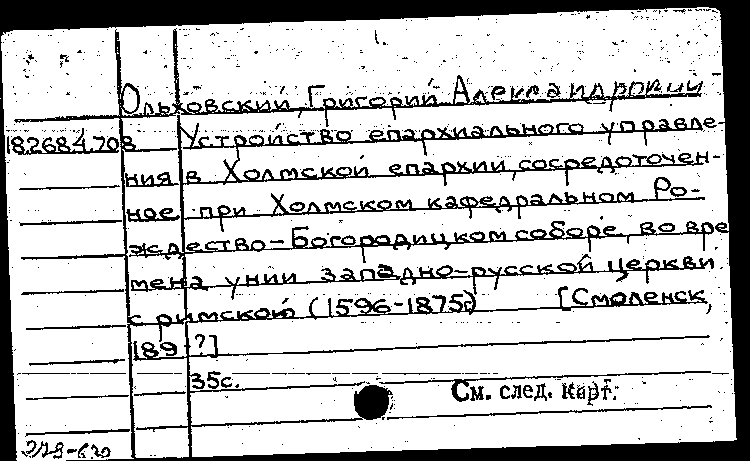 Ольховский, Григорий Александрович
182684.708 Устройство епархиального управле-
ния в Холмской епархии, сосредоточен-
ное при Холмском кафедральном Ро-
ждество-Богородицком соборе, во вре
мена унии западно-русской церкви
с римской (1596-1875г) [Смоленск,
189 ?]
35с.
См. след. карт.